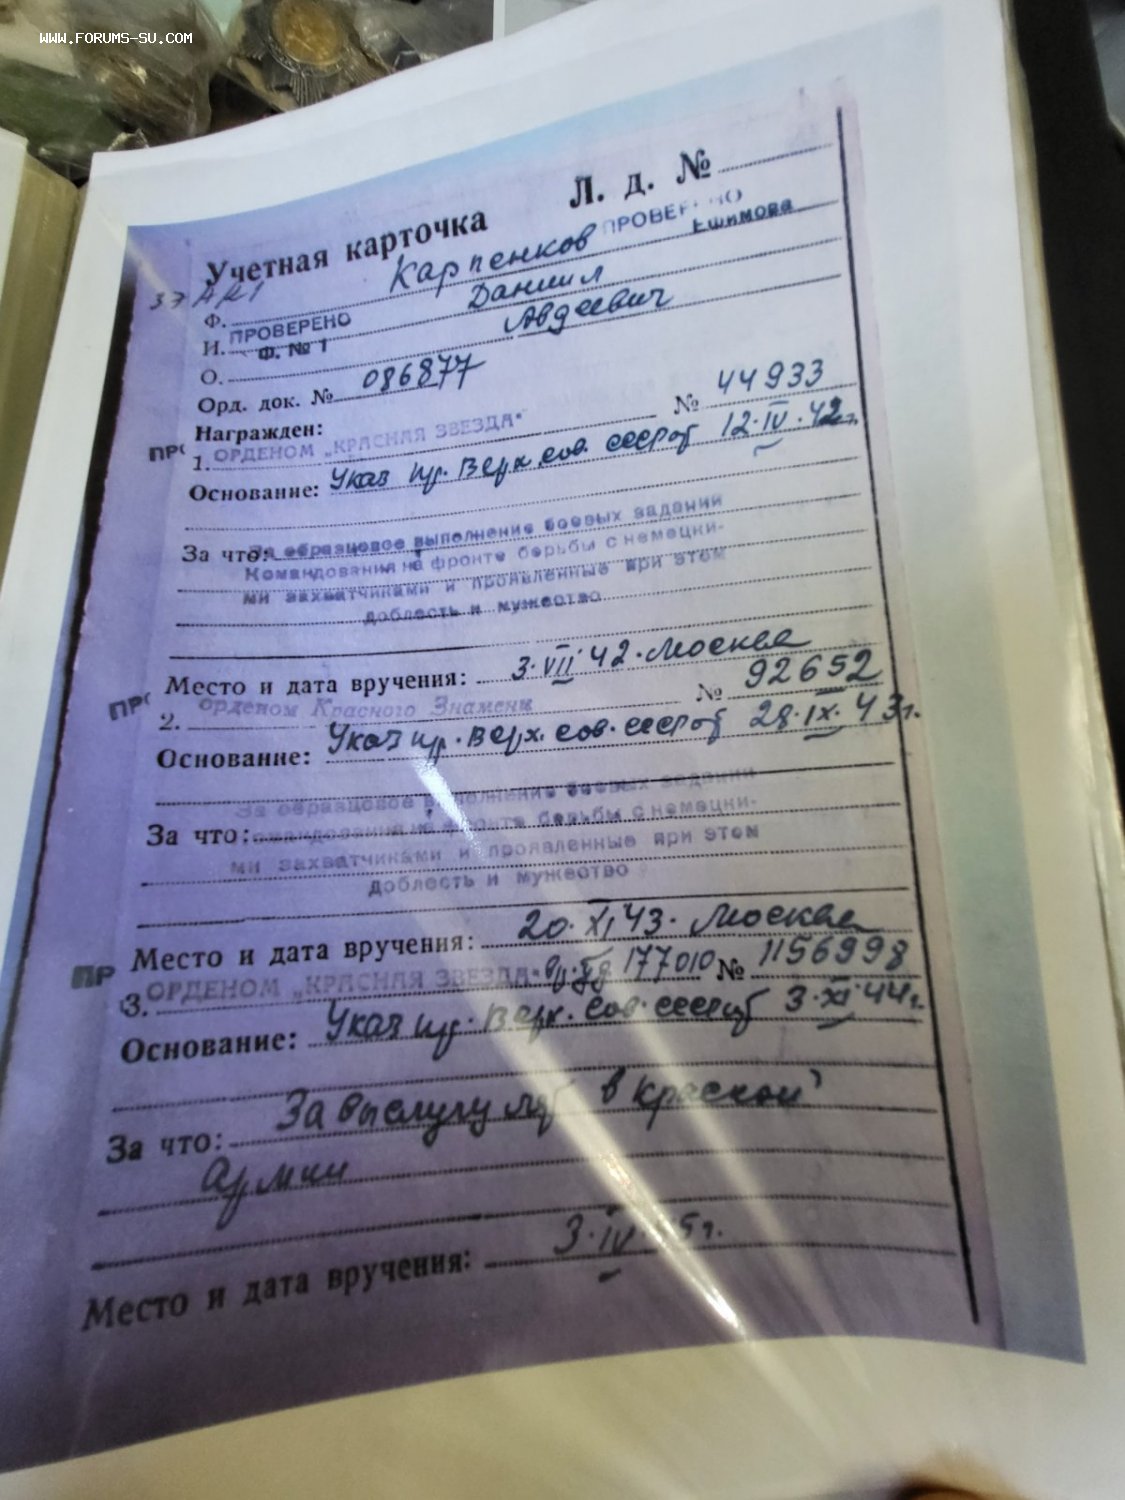 WWW.FORUMS-SU.COM
Л. д. №
Учетная карточка
ПРОВЕРЕНО
Ешимова
Ф. Карпенков
И. Даниил
ПРОВЕРЕНО
Ф. № 1
О. Авдеевич
Орд. док. № 086877
Награжден:
1. ОРДЕНОМ „КРАСНАЯ ЗВЕЗДА" № 44933
Основание: Указ пр. Верх. сов. ссср от 12.IV.42г.
За что: За образцовое выполнение боевых заданий
Командования на фронте борьбы с немецки-
ми захватчиками и проявленные при этом
доблесть и мужество
Место и дата вручения: 3.VII.42. Москва
2. Орденом Красного Знамени № 92652
Основание: Указ пр. Верх. сов. ссср от 28.IX.43г.
За что: За образцовое выполнение боевых заданий
Командования на фронте борьбы с немецки-
ми захватчиками и проявленные при этом
доблесть и мужество
Место и дата вручения: 20.XI.43. Москва
3. ОРДЕНОМ „КРАСНАЯ ЗВЕЗДА" 177010 № 1156998
Основание: Указ пр. Верх. сов. ссср от 3.XI.44г.
За что: За выслугу лет в красной
Армии
Место и дата вручения: 3.IV.45г.